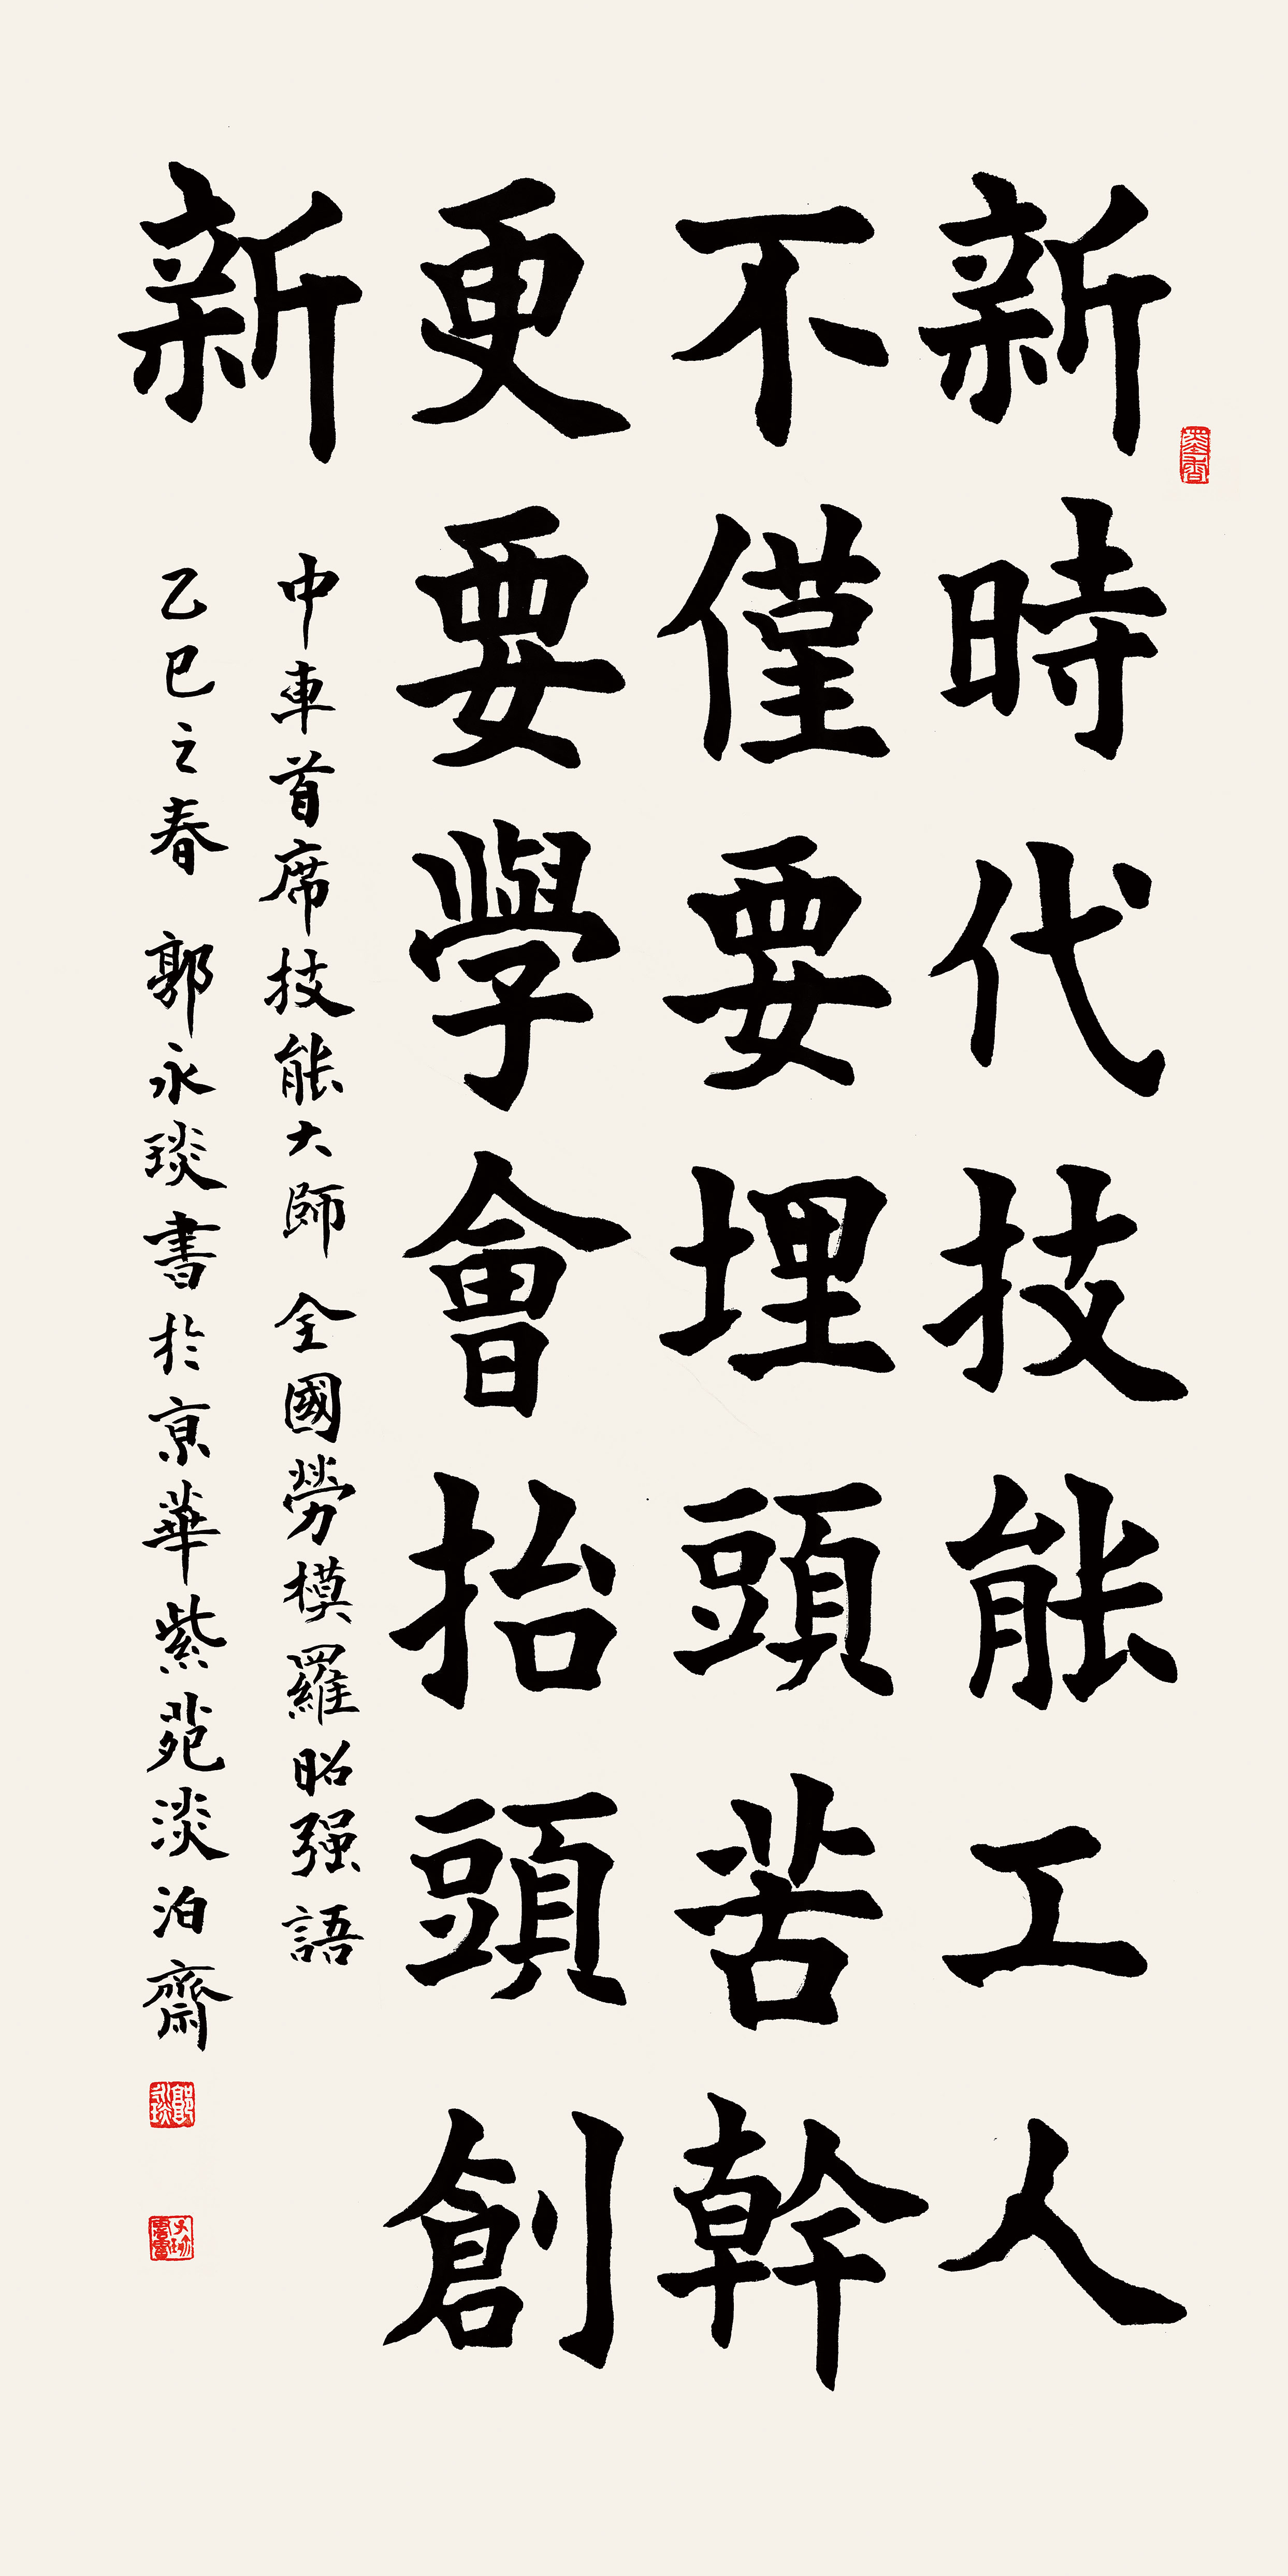 新時代技能工人
不僅要埋頭苦幹
更要學會抬頭創
新
中車首席技能大師 全國勞模羅昭强語
乙巳之春 郭永琰書於京華紫苑淡泊齋
墨香
郭永琰